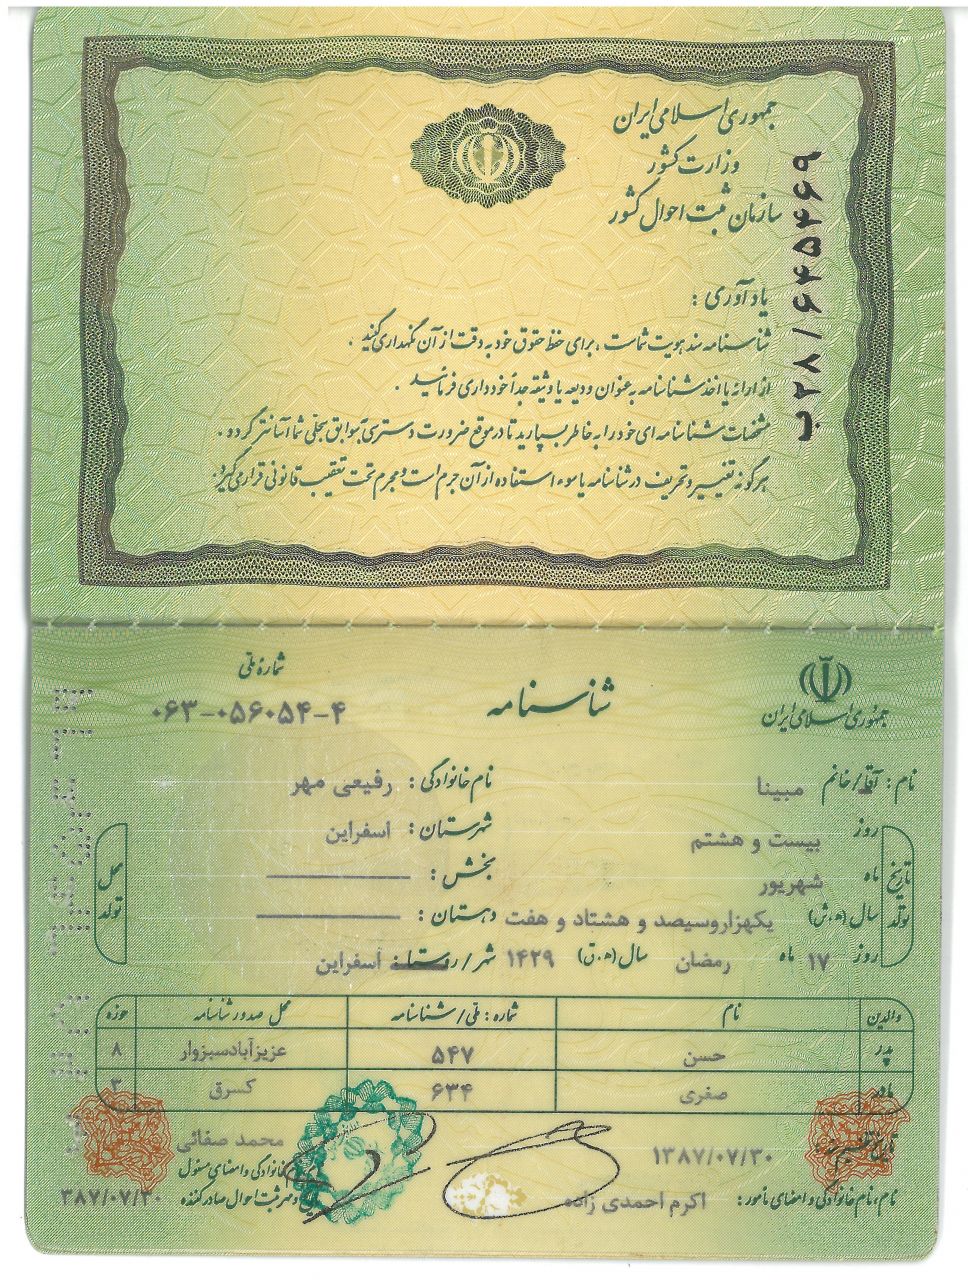 جمهوری اسلامی ایران
وزارت کشور
سازمان ثبت احوال کشور
ب۲۸/۶۴۵۴۶۹
یادآوری :
شناسنامه سند هویت شماست ، برای حفظ حقوق خود به دقت از آن نگهداری کنید .
از ارائه یا اخذ شناسنامه به عنوان ودیعه یا وثیقه جداً خودداری فرمائید .
مشخصات شناسنامه ای خود را به خاطر بسپارید تا در موقع ضرورت دسترسی به سوابق سجلی شما آسانتر گردد .
هرگونه تغییر و تحریف در شناسنامه یا سوء استفاده از آن جرم است و مجرم تحت تعقیب قانونی قرار می گیرد.
جمهوری اسلامی ایران
شناسنامه
شمارهٔ ملی
۰۶۳-۰۵۶۰۵۴-۴
نام : آقا/خانم مبینا نام خانوادگی : رفیعی مهر
تاریخ تولد
روز بیست و هشتم
ماه شهریور
سال (ه.ش) یکهزاروسیصد و هشتاد و هفت
روز ۱۷ ماه رمضان سال (ه.ق) ۱۴۲۹
محل تولد
شهرستان : اسفراین
بخش :
دهستان :
شهر/روستا : اسفراین
والدین نام شماره : ملی/شناسنامه محل صدور شناسنامه حوزه
پدر حسن ۵۴۷ عزیزآبادسبزوار ۸
مادر صغری ۶۳۴ کسرق ۳
تاریخ تنظیم سند ۱۳۸۷/۰۷/۳۰
نام، نام خانوادگی و امضای مأمور : اکرم احمدی زاده
محمد صفائی
خانوادگی و امضای مسئول
و مهر ثبت احوال صادرکننده : ۳۸۷/۰۷/۳۰